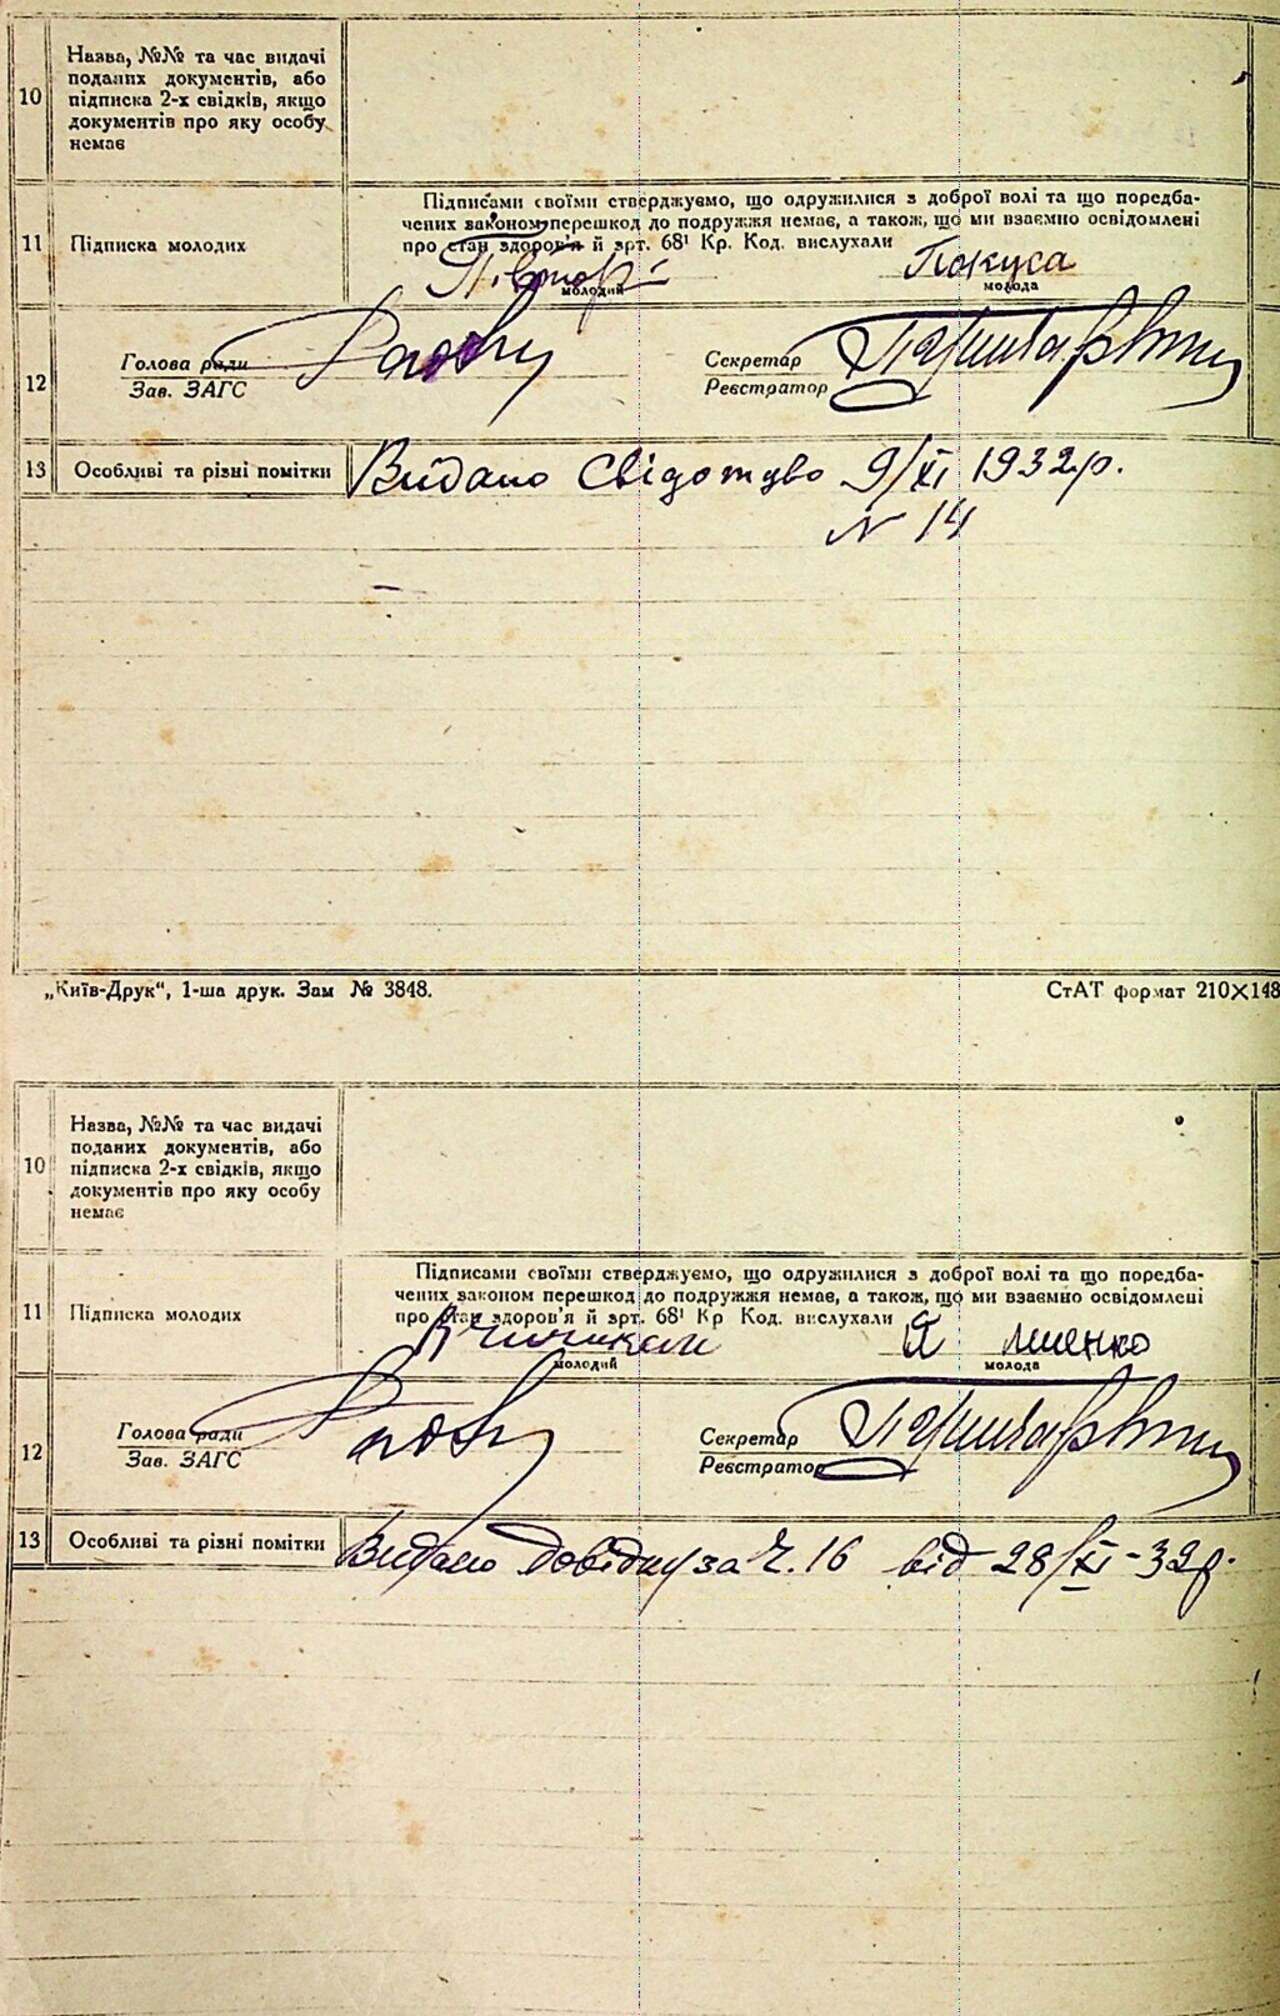 10
Назва, №№ та час видачі
поданих документів, або
підписка 2-х свідків, якщо
документів про яку особу
немає
11 Підписка молодих
Підписами своїми стверджуємо, що одружилися з доброї волі та що поредба-
чених законом перешкод до подружжя немає, а також, що ми взаємно освідомлені
про стан здоров'я й арт. 68¹ Кр. Код. вислухали
Покуса
молодий молода
12
Голова ради Секретар
Зав. ЗАГС Реєстратор
13 Особливі та різні помітки Видано Свідотцво 9/XI 1932 р.
N 14
„Київ-Друк“, 1-ша друк. Зам № 3848. СтАТ формат 210×148
10
Назва, №№ та час видачі
поданих документів, або
підписка 2-х свідків, якщо
документів про яку особу
немає
11 Підписка молодих
Підписами своїми стверджуємо, що одружилися з доброї волі та що поредба-
чених законом перешкод до подружжя немає, а також, що ми взаємно освідомлені
про стан здоров'я й арт. 68¹ Кр Код. вислухали
молодий молода
12
Голова ради Секретар
Зав. ЗАГС Реєстратор
13 Особливі та різні помітки Видано довідку за Ч. 16 від 28/XI-32 р.